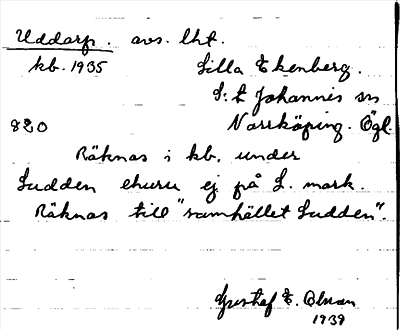 Uddarp. avs. lht.
kb. 1935 Lilla Ekenberg.
S:t Johannis sn
820 Norrköping. Ögl.
Räknas i kb. under
Ludden ehuru ej på L. mark.
Räknas till "samhället Ludden".
Gusthaf E. Olman
1939